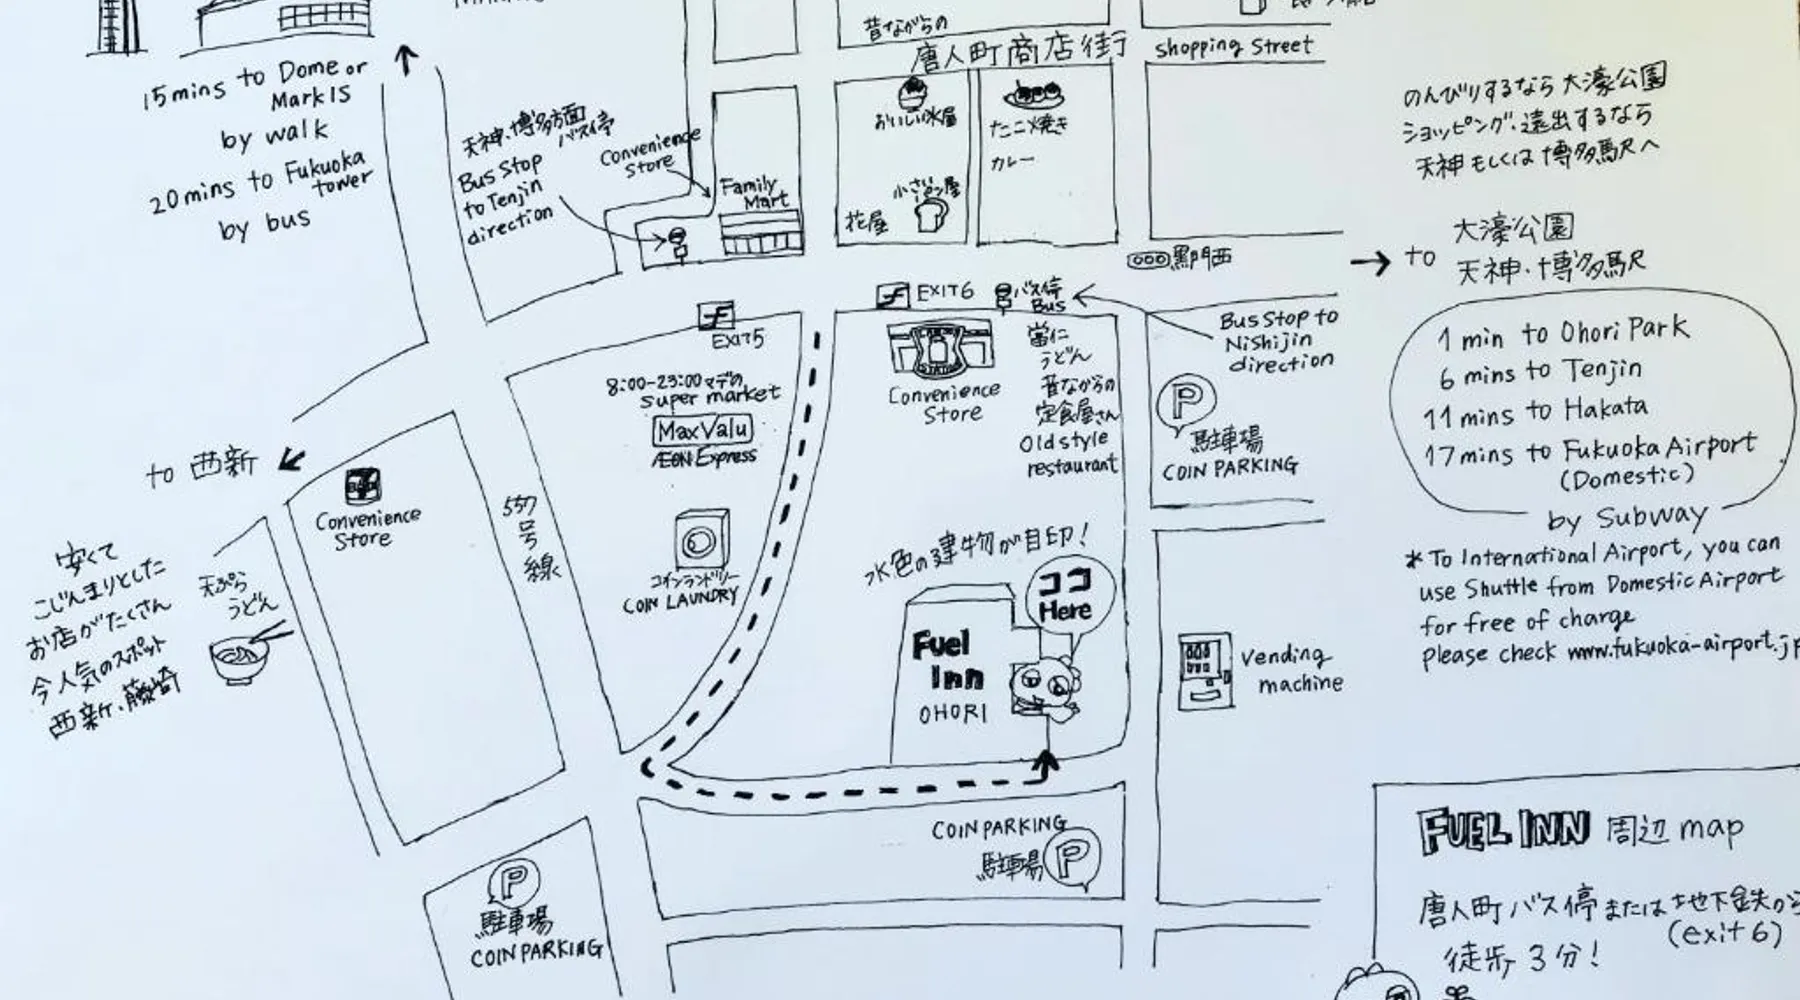 15mins to Dome or
MarkIS
by walk
20mins to Fukuoka
tower
by bus
天神・博多方面
バス停
Bus Stop
to Tenjin
direction
Convenience
Store
Family
Mart
昔ながらの
唐人町商店街
shopping Street
おいしい氷屋
たこ焼き
カレー
小さいパン屋
花屋
黒門西
のんびりするなら 大濠公園
ショッピング、遠出するなら
天神もしくは博多駅へ
to
大濠公園
天神・博多駅
1 min to Ohori Park
6 mins to Tenjin
11 mins to Hakata
17mins to Fukuoka Airport
(Domestic)
by Subway
*To International Airport, you can
use Shuttle from Domestic Airport
for free of charge
please check www.fukuoka-airport.jp
EXIT5
EXIT6
バス停
Bus
Bus Stop to
Nishijin
direction
8:00-23:00マデの
super market
MaxValu
ÆON Express
Convenience
Store
當仁
うどん
昔ながらの
定食屋さん
Old style
restaurant
P
駐車場
COIN PARKING
to 西新
Convenience
Store
557
号
線
コインランドリー
COIN LAUNDRY
水色の建物が目印!
ココ
Here
Fuel
Inn
OHORI
Vending
machine
安くて
こじんまりとした
お店がたくさん
今人気のスポット
西新、藤崎
天ぷら
うどん
COIN PARKING
駐車場
P
P
駐車場
COIN PARKING
FUEL INN 周辺 map
唐人町バス停または地下鉄から
(exit 6)
徒歩 3分!